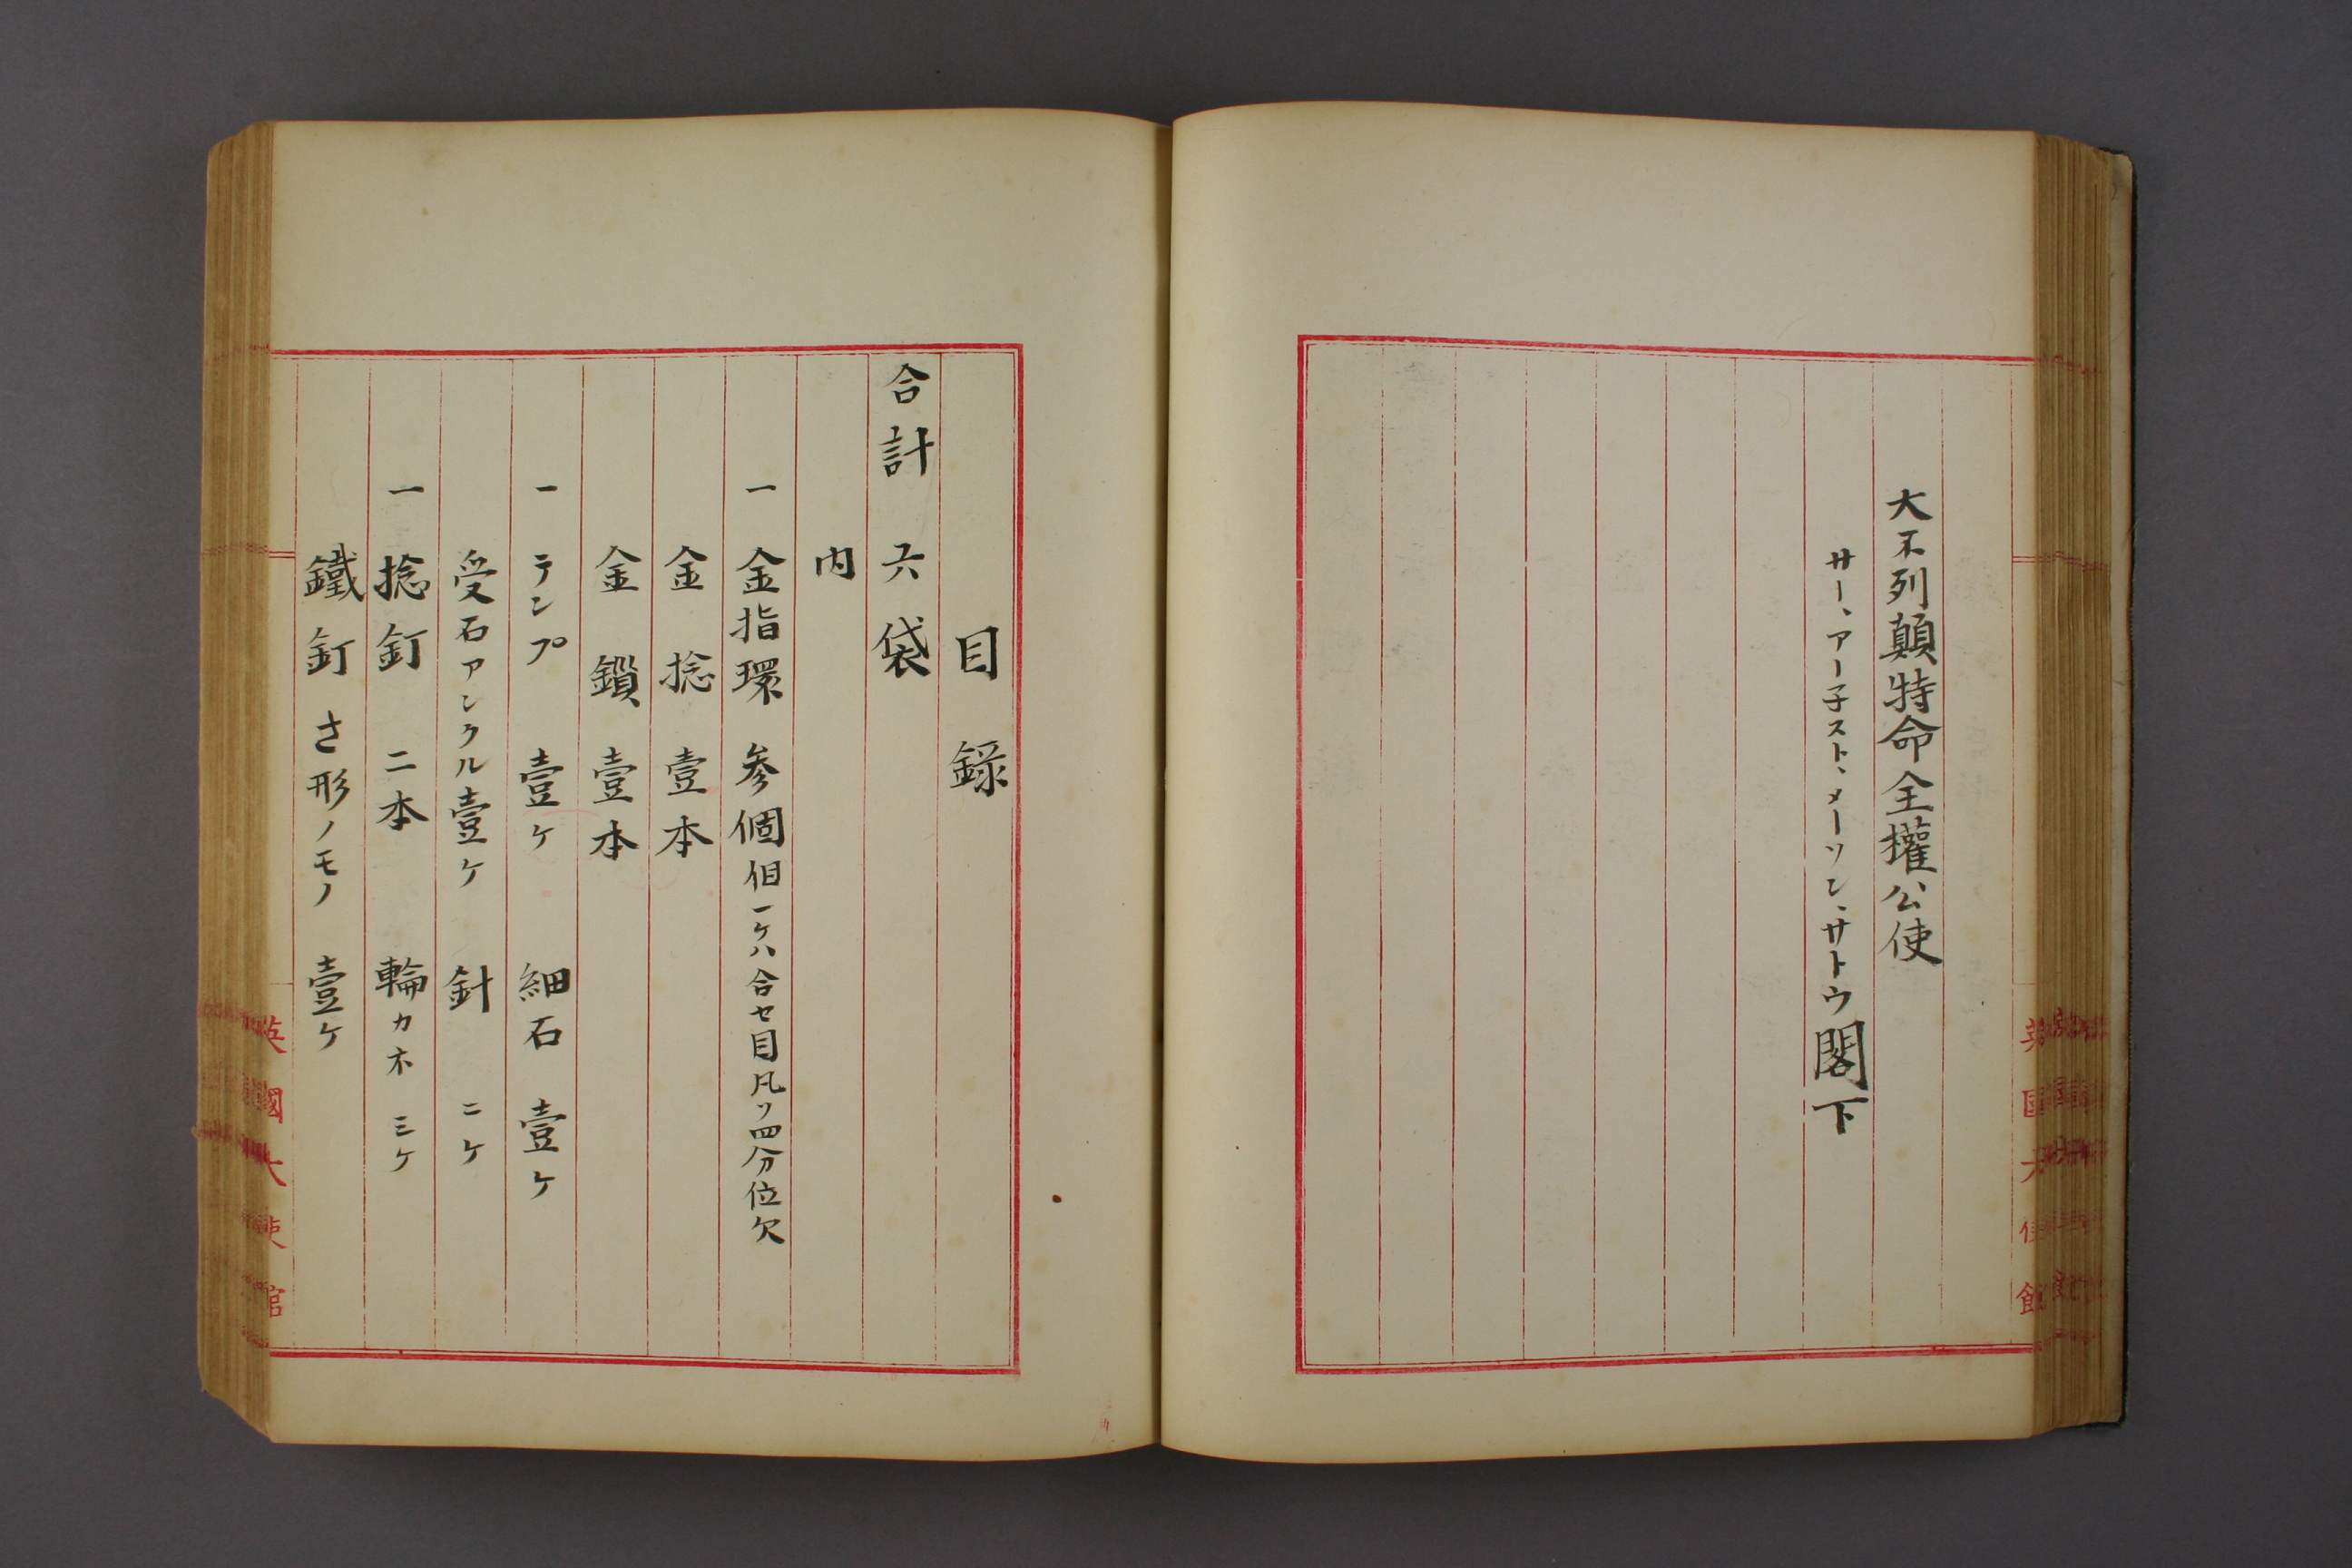 大不列顛特命全權公使
サー、アー子スト、メーソン、サトウ閣下
目録
合計六袋
内
一 金指環 参個 但一ケハ合セ目凡ソ四分位欠
金捻 壹本
金鎖 壹本
一 テンプ 壹ケ 細石 壹ケ
受石アンクル壹ケ 針 二ケ
一 捻釘 二本 輪カネ 三ケ
鐵釘さ形ノモノ 壹ケ
英國大使館